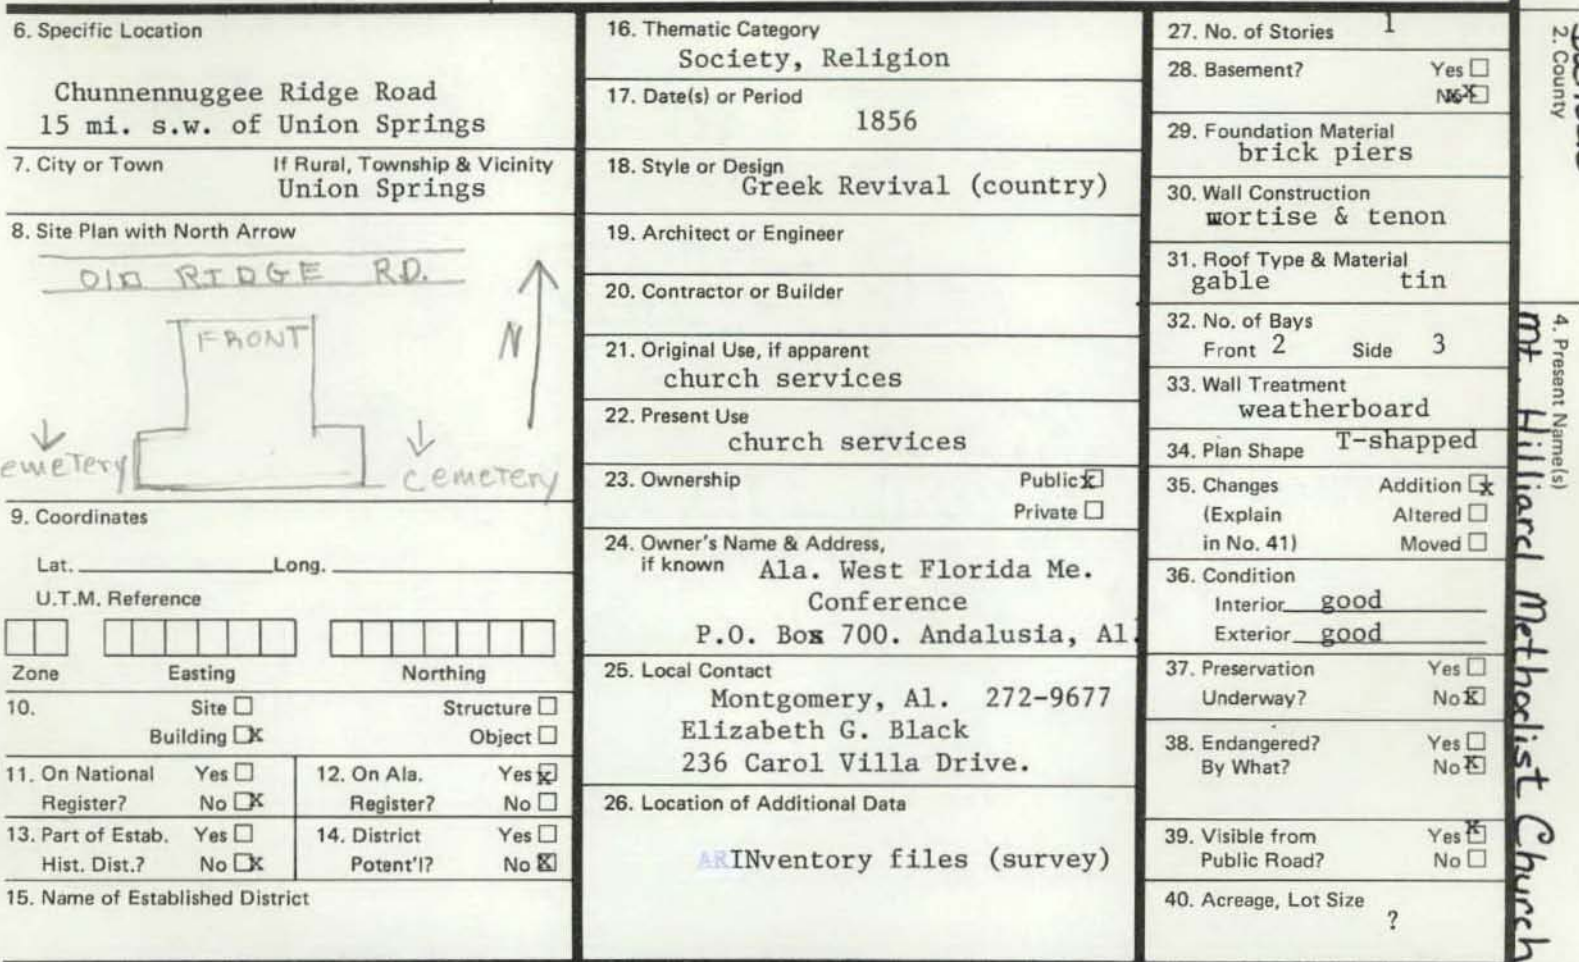 6. Specific Location
Chunnennuggee Ridge Road
15 mi. s.w. of Union Springs
7. City or Town If Rural, Township & Vicinity
Union Springs
8. Site Plan with North Arrow
OLD RIDGE RD.
FRONT
N
emetery
cemetery
9. Coordinates
Lat. Long.
U.T.M. Reference
Zone Easting Northing
10. Site ☐ Structure ☐
Building ☒ Object ☐
11. On National Yes ☐
Register? No ☒
12. On Ala. Yes ☒
Register? No ☐
13. Part of Estab. Yes ☐
Hist. Dist.? No ☒
14. District Yes ☐
Potent'l? No ☒
15. Name of Established District
16. Thematic Category
Society, Religion
17. Date(s) or Period
1856
18. Style or Design
Greek Revival (country)
19. Architect or Engineer
20. Contractor or Builder
21. Original Use, if apparent
church services
22. Present Use
church services
23. Ownership Public ☒
Private ☐
24. Owner's Name & Address,
if known Ala. West Florida Me.
Conference
P.O. Box 700. Andalusia, Al.
25. Local Contact
Montgomery, Al. 272-9677
Elizabeth G. Black
236 Carol Villa Drive.
26. Location of Additional Data
INventory files (survey)
27. No. of Stories 1
28. Basement? Yes ☐
No ☒
29. Foundation Material
brick piers
30. Wall Construction
mortise & tenon
31. Roof Type & Material
gable tin
32. No. of Bays
Front 2 Side 3
33. Wall Treatment
weatherboard
34. Plan Shape T-shapped
35. Changes Addition ☒
(Explain Altered ☐
in No. 41) Moved ☐
36. Condition
Interior good
Exterior good
37. Preservation Yes ☐
Underway? No ☒
38. Endangered? Yes ☐
By What? No ☒
39. Visible from Yes ☒
Public Road? No ☐
40. Acreage, Lot Size
?
2. County
4. Present Name(s)
Mt. Hilliard Methodist Church